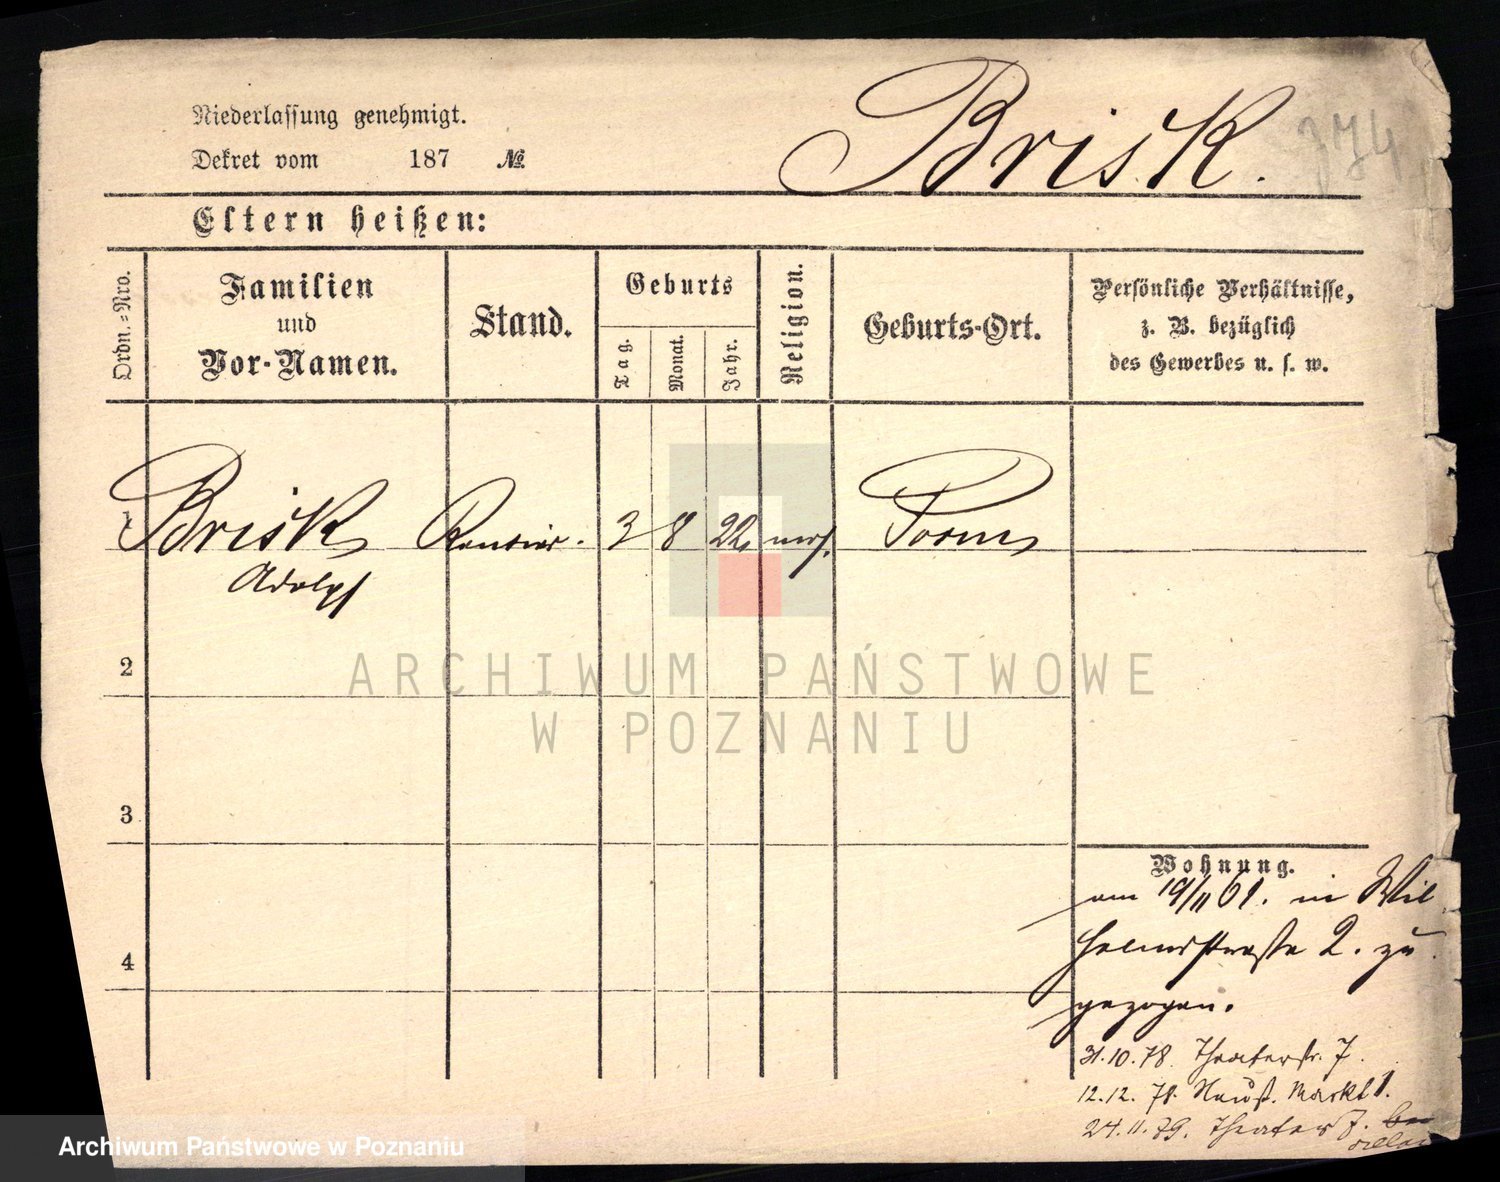 Niederlassung genehmigt.
Dekret vom 187 №
Brisk.
374
Eltern heißen:
Ordn.-Nro.
Familien
und
Vor-Namen.
Stand.
Geburts
Tag.
Monat.
Jahr.
Religion.
Geburts-Ort.
Persönliche Verhältnisse,
z. B. bezüglich
des Gewerbes u. s. w.
1 Brisk Rentier. 3 8 22
Adolph
2
3
4
Wohnung.
am 19/11 61. in Wil
helmstraße 2. zu
gezogen.
31.10.78. Theaterstr. 7.
12.12.78. Neust. Markt 1.
24.11.79. Theaterst 7.
ARCHIWUM PAŃSTWOWE
W POZNANIU
Archiwum Państwowe w Poznaniu